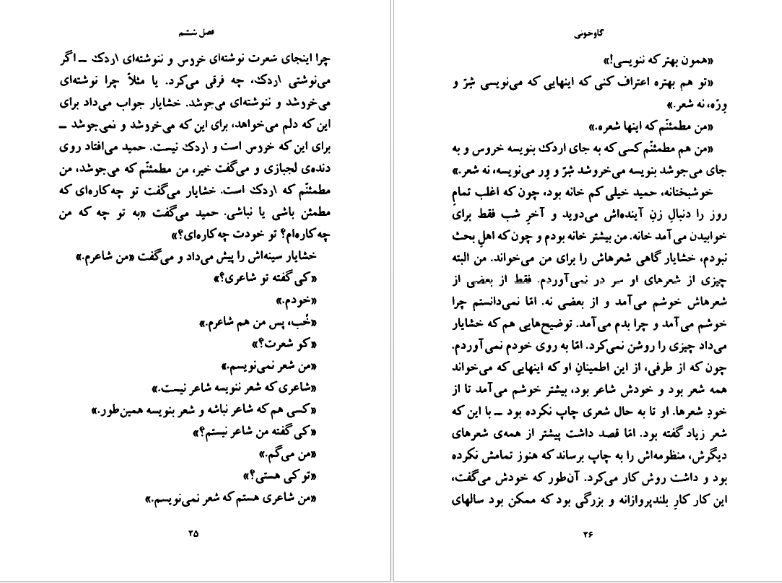 فصل ششم
چرا اینجای شعرت نوشته‌ای خروس و ننوشته‌ای اردک ــ اگر
می‌نوشتی اردک، چه فرقی می‌کرد. یا مثلاً چرا نوشته‌ای
می‌خروشد و ننوشته‌ای می‌جوشد. خشایار جواب می‌داد برای
این که دلم می‌خواهد، برای این که می‌خروشد و نمی‌جوشد ــ
برای این که خروس است و اردک نیست. حمید می‌افتاد روی
دنده‌ی لجبازی و می‌گفت خیر، من مطمئنّم که می‌جوشد، من
مطمئنّم که اردک است. خشایار می‌گفت تو چه‌کاره‌ای که
مطمئن باشی یا نباشی. حمید می‌گفت «به تو چه که من
چه‌کاره‌ام؟ تو خودت چه‌کاره‌ای؟»
خشایار سینه‌اش را پیش می‌داد و می‌گفت «من شاعرم.»
«کی گفته تو شاعری؟»
«خودم.»
«خُب، پس من هم شاعرم.»
«کو شعرت؟»
«من شعر نمی‌نویسم.»
«شاعری که شعر ننویسه شاعر نیست.»
«کسی هم که شاعر نباشه و شعر بنویسه همین‌طور.»
«کی گفته من شاعر نیستم؟»
«من می‌گم.»
«تو کی هستی؟»
«من شاعری هستم که شعر نمی‌نویسم.»
۲۵
گاوخونی
«همون بهتر که ننویسی!»
«تو هم بهتره اعتراف کنی که اینهایی که می‌نویسی شِرّ و
وِرّه، نه شعر.»
«من مطمئنّم که اینها شعره.»
«من هم مطمئنّم کسی که به جای اردک بنویسه خروس و به
جای می‌جوشد بنویسه می‌خروشد شِرّ و وِر می‌نویسه، نه شعر.»
خوشبختانه، حمید خیلی کم خانه بود، چون که اغلب تمامِ
روز را دنبالِ زنِ آینده‌اش می‌دوید و آخرِ شب فقط برای
خوابیدن می‌آمد خانه. من بیشتر خانه بودم و چون که اهلِ بحث
نبودم، خشایار گاهی شعرهاش را برای من می‌خواند. من البته
چیزی از شعرهای او سر در نمی‌آوردم. فقط از بعضی از
شعرهاش خوشم می‌آمد و از بعضی نه. امّا نمی‌دانستم چرا
خوشم می‌آمد و چرا بدم می‌آمد. توضیح‌هایی هم که خشایار
می‌داد چیزی را روشن نمی‌کرد. امّا به روی خودم نمی‌آوردم.
چون که از طرفی، از این اطمینانِ او که اینهایی که می‌خواند
همه شعر بود و خودش شاعر بود، بیشتر خوشم می‌آمد تا از
خودِ شعرها. او تا به حال شعری چاپ نکرده بود ــ با این که
شعر زیاد گفته بود. امّا قصد داشت پیشتر از همه‌ی شعرهای
دیگرش، منظومه‌اش را به چاپ برساند که هنوز تمامش نکرده
بود و داشت روش کار می‌کرد. آن‌طور که خودش می‌گفت،
این کار کارِ بلندپروازانه و بزرگی بود که ممکن بود سالهای
۲۶